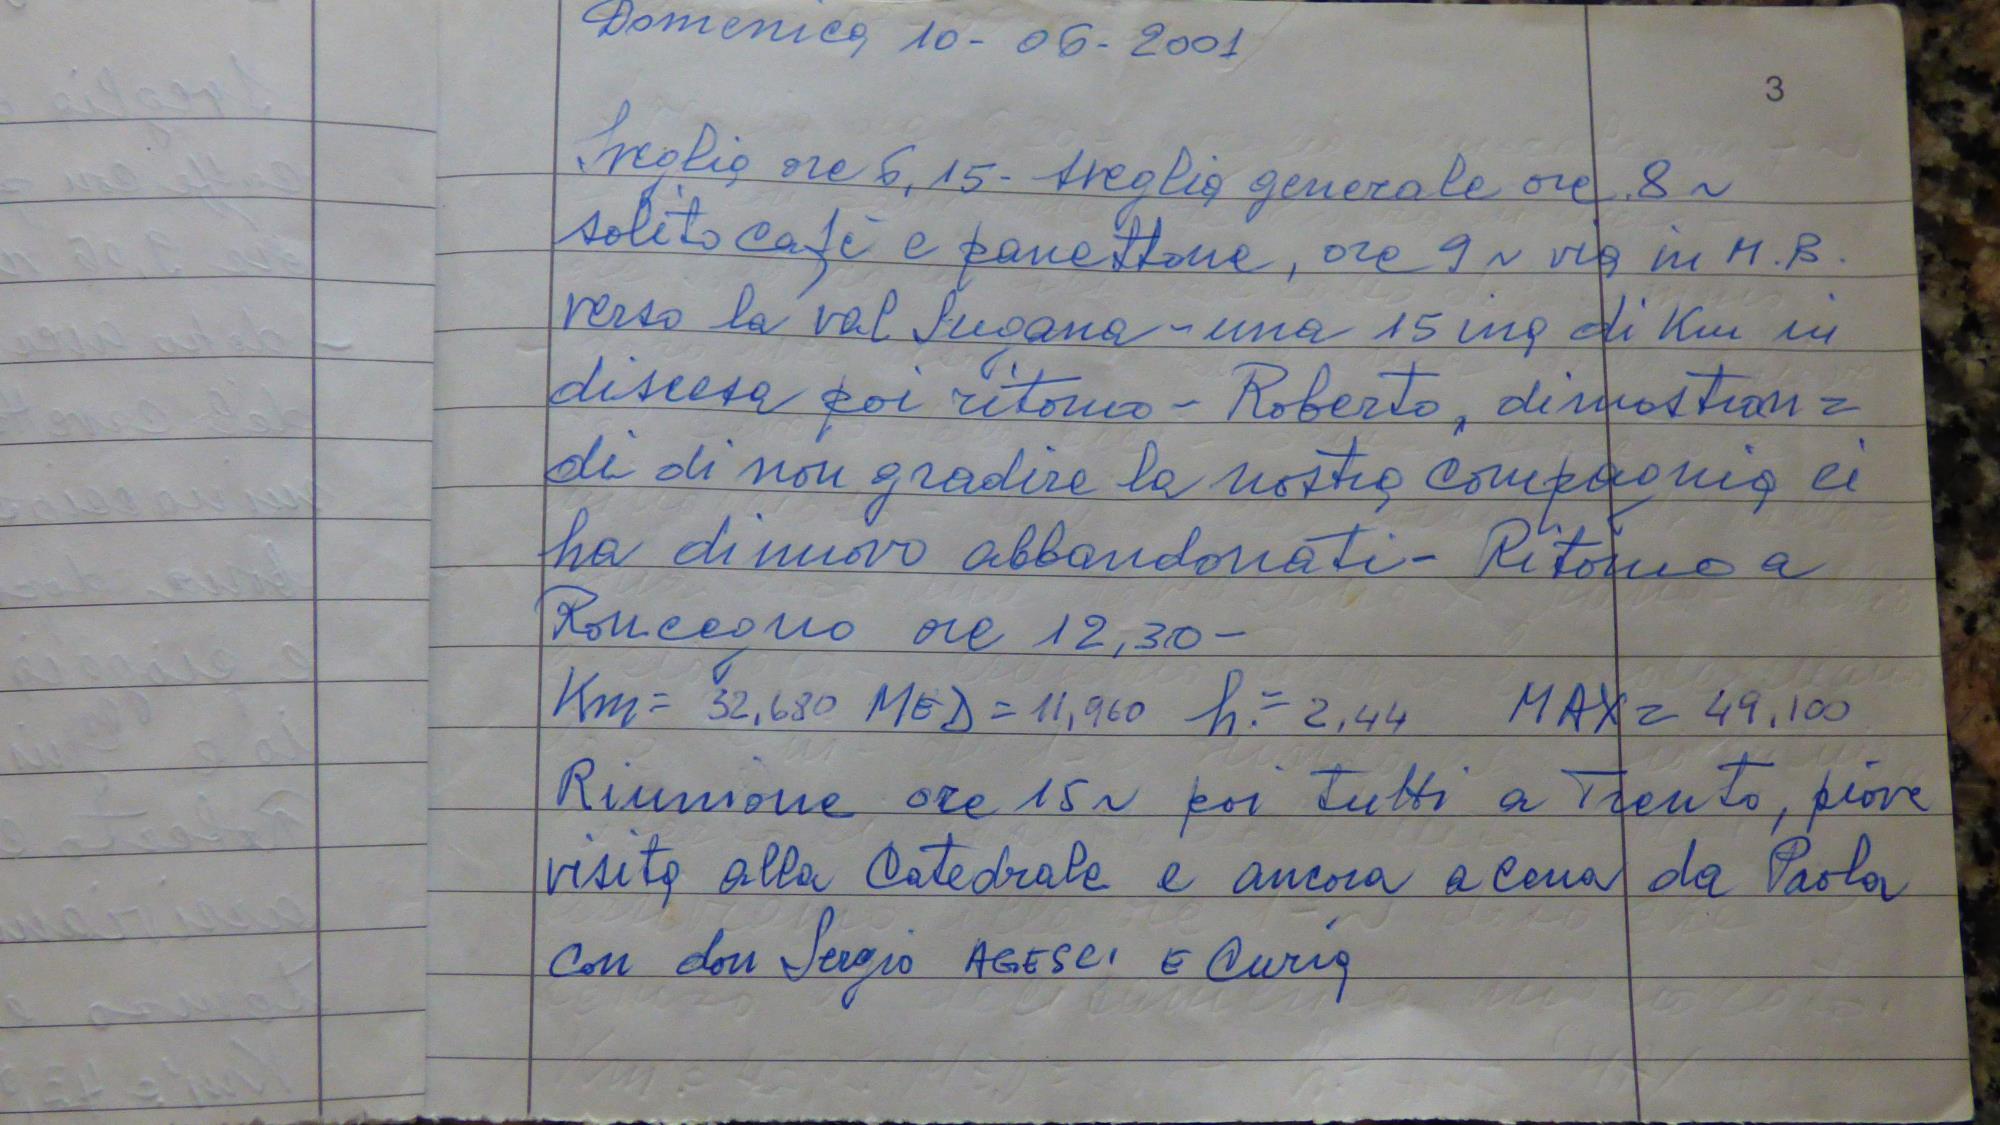 Domenica 10-06-2001
3
Sveglia ore 6,15- sveglia generale ore 8~
solito cafè e panettone, ore 9~ via in M.B.
verso la val Sugana - una 15ina di Km in
discesa poi ritorno - Roberto, dimostran=
di di non gradire la nostra compagnia ci
ha di nuovo abbandonati - Ritorno a
Roncegno ore 12,30-
Km= 32,680 MED=11,960 h.= 2,44 MAX= 49,100
Riunione ore 15~ poi tutti a Trento, piove
visita alla Catedrale e ancora a cena da Paola
con don Sergio AGESCI E Curia